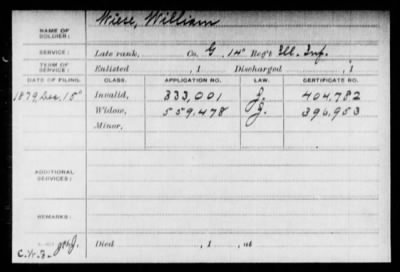 NAME OF SOLDIER: Wiese, William
SERVICE: Late rank, Co. G, 14" Reg't Ill. Inf.
TERM OF SERVICE: Enlisted , 1 Discharged , 1
DATE OF FILING. CLASS. APPLICATION NO. LAW. CERTIFICATE NO.
1879, Dec. 15" Invalid, 333,001 404,782
Widow, 559,478 396,953
Minor,
ADDITIONAL SERVICES:
REMARKS:
Died , 1 , at